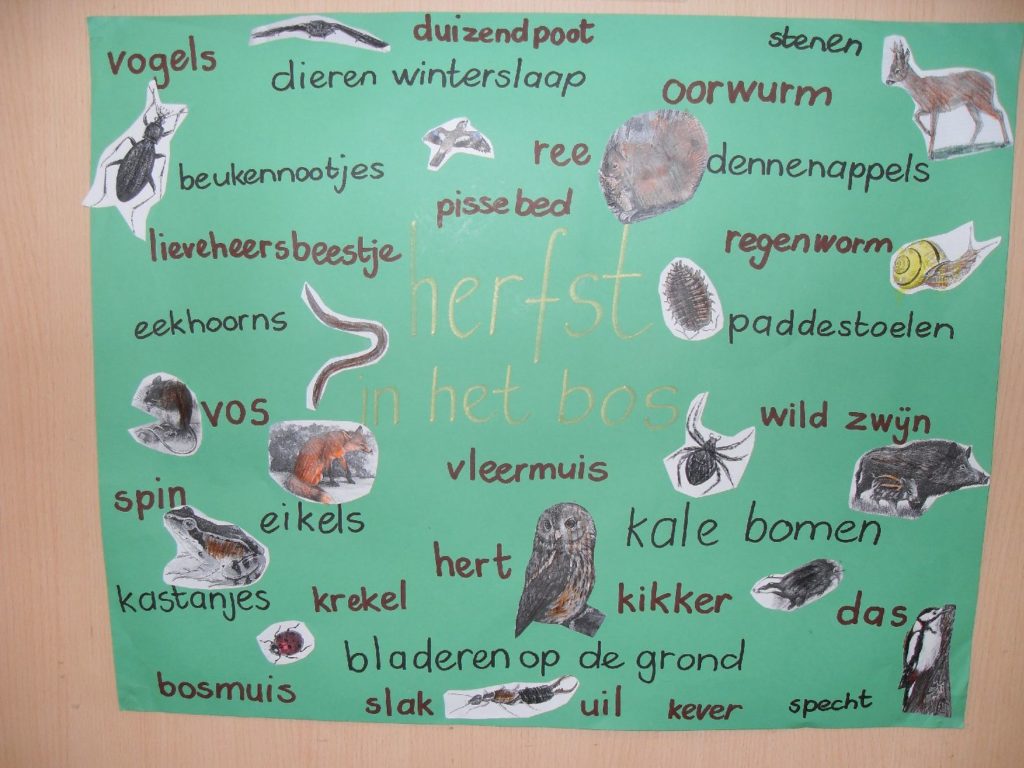 duizendpoot
stenen
vogels
dieren winterslaap
oorwurm
ree
dennenappels
beukennootjes
pissebed
lieveheersbeestje
regenworm
herfst
eekhoorns
paddestoelen
in het bos
vos
wild zwijn
vleermuis
spin
eikels
kale bomen
hert
kastanjes
krekel
kikker
das
bladeren op de grond
bosmuis
slak
uil
kever
specht